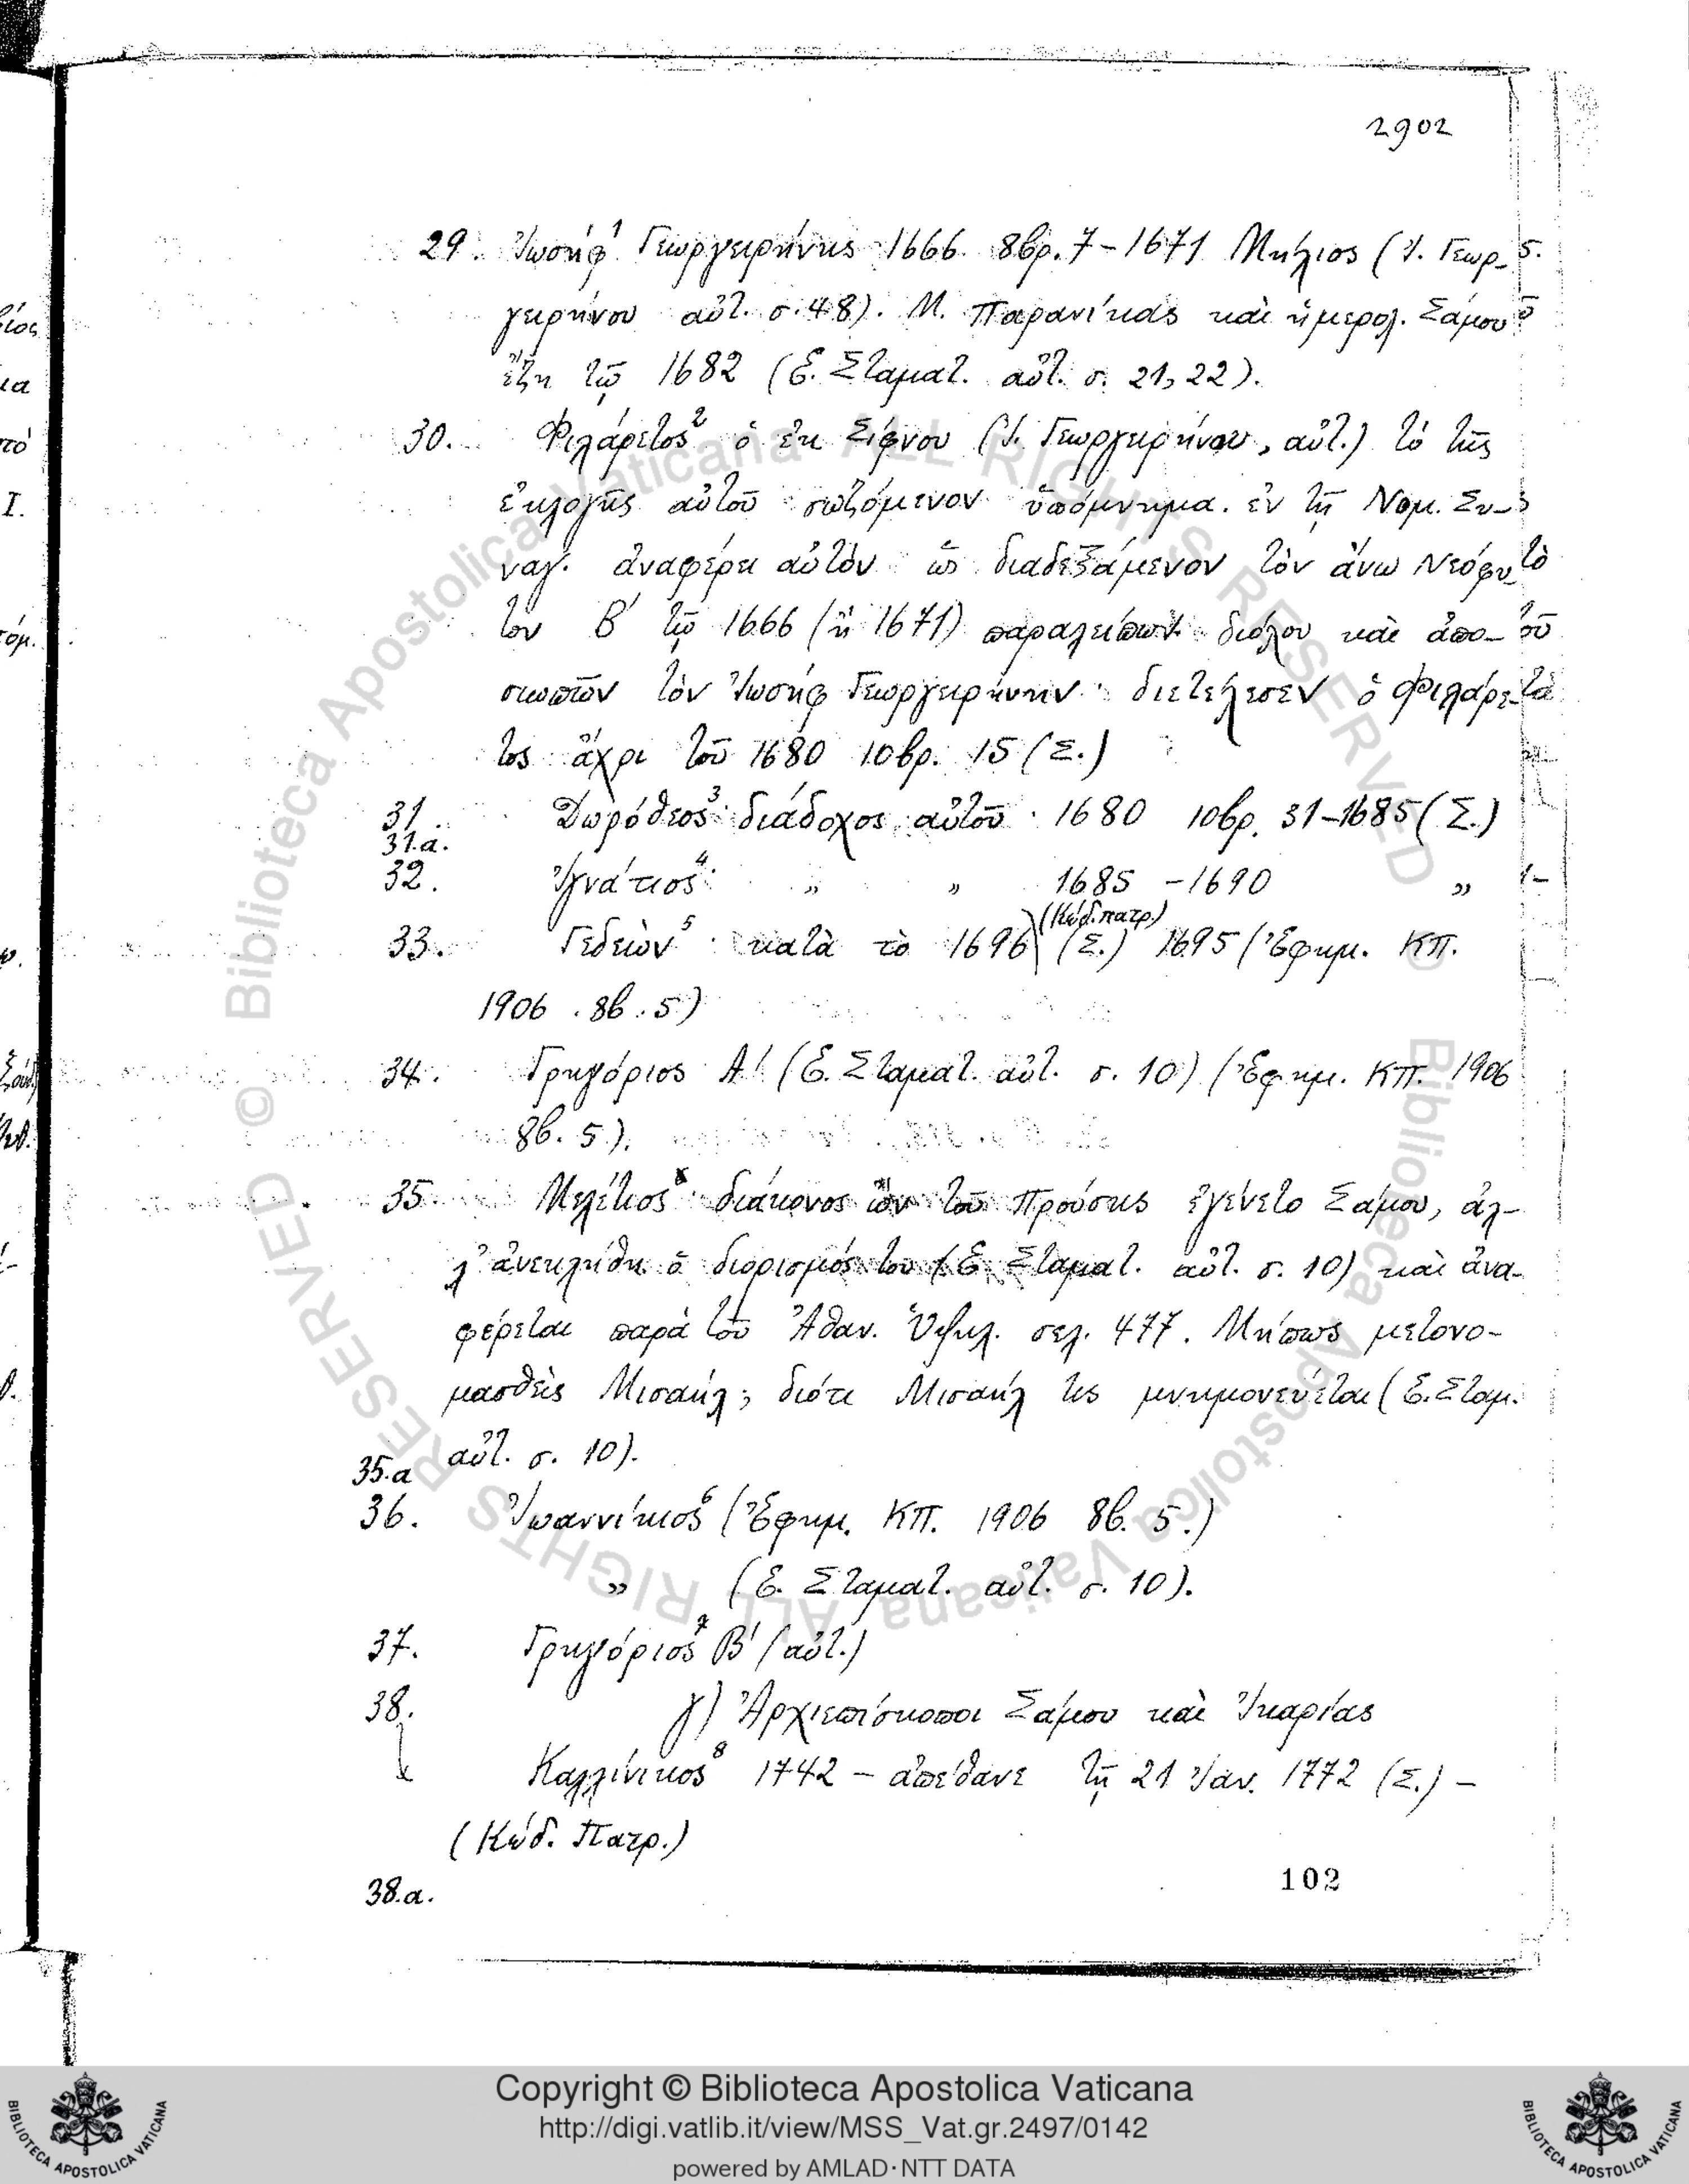 2902
29. Ἰωσὴφ¹ Γεωργειρήνης 1666 8βρ. 7 – 1671 Μήλιος (Ἰ. Γεωρ-
γειρήνου αὐτ. σ. 48). Μ. Παρανίκας καὶ ἡμερολ. Σάμου
ἔτη τῷ 1682 (Ε. Σταματ. αὐτ. σ. 21, 22).
30. Φιλάρετος² ὁ ἐκ Σίφνου (Ἰ. Γεωργειρήνου, αὐτ.) τὸ τῆς
ἐκλογῆς αὐτοῦ σωζόμενον ὑπόμνημα ἐν τῇ Νομ. Συ-
ναγ. ἀναφέρει αὐτὸν ὡς διαδεξάμενον τὸν ἄνω Νεόφυ-
τον Β' τῷ 1666 (ἢ 1671) παραλείπων διόλου καὶ ἀπο-
σιωπῶν τὸν Ἰωσὴφ Γεωργειρήνην· διετέλεσεν ὁ Φιλάρε-
τος ἄχρι τοῦ 1680 10βρ. 15 (Σ.)
31. Δωρόθεος³ διάδοχος αὐτοῦ 1680 10βρ. 31–1685 (Σ.)
31.α.
32. Ἰγνάτιος⁴ „ „ 1685 – 1690 „
(Κώδ. πατρ.)
33. Γεδεὼν⁵ κατὰ τὸ 1696 (Σ.) 1695 (Ἐφημ. ΚΠ.
1906 . 8β . 5)
34. Γρηγόριος Α' (Ε. Σταματ. αὐτ. σ. 10) (Ἐφημ. ΚΠ. 1906
8β. 5).
35. Μελέτιος διάκονος ὢν τοῦ Προύσης ἐγένετο Σάμου, ἀλ-
λ' ἀνεκλήθη ὁ διορισμός του (Ε. Σταματ. αὐτ. σ. 10) καὶ ἀνα-
φέρεται παρὰ τοῦ Ἀθαν. Ὑψηλ. σελ. 477. Μήπως μετονο-
μασθεὶς Μισαήλ; διότι Μισαήλ τις μνημονεύεται (Ε. Σταμ.
αὐτ. σ. 10).
35.α
36. Ἰωαννίκιος⁶ (Ἐφημ. ΚΠ. 1906 8β. 5.)
„ (Ε. Σταματ. αὐτ. σ. 10).
37. Γρηγόριος⁷ Β' (αὐτ.)
38. γ) Ἀρχιεπίσκοποι Σάμου καὶ Ἰκαρίας
Καλλίνικος⁸ 1742 – ἀπέθανε τῇ 21 Ἰάν. 1772 (Σ.) –
(Κώδ. Πατρ.)
102
38.α.
© Biblioteca Apostolica Vaticana ALL RIGHTS RESERVED
© Biblioteca Apostolica Vaticana ALL RIGHTS RESERVED
Copyright © Biblioteca Apostolica Vaticana
http://digi.vatlib.it/view/MSS_Vat.gr.2497/0142
powered by AMLAD·NTT DATA
BIBLIOTECA APOSTOLICA VATICANA
BIBLIOTECA APOSTOLICA VATICANA